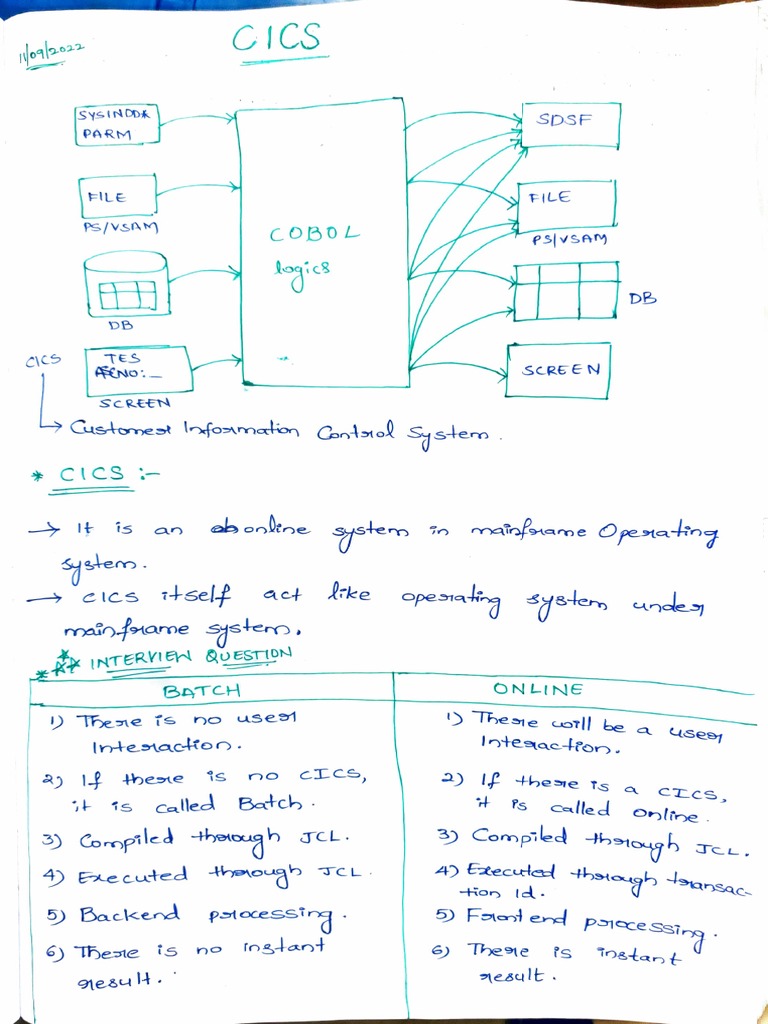 11/09/2022
CICS
SYSINDDR
PARM
FILE
PS/VSAM
DB
CICS
TES
SCREEN
COBOL
logics
SDSF
FILE
PS/VSAM
DB
SCREEN
Customer Information Control System.
* CICS :-
→ It is an online system in mainframe Operating
system.
→ CICS itself act like operating system under
mainframe system.
*** INTERVIEW QUESTION
BATCH
1) There is no user
Interaction.
2) If there is no CICS,
it is called Batch.
3) Compiled through JCL.
4) Executed through JCL.
5) Backend processing.
6) There is no instant
result.
ONLINE
1) There will be a user
Interaction.
2) If there is a CICS,
it is called online.
3) Compiled through JCL.
4) Executed through transac-
tion Id.
5) Frontend processing.
6) There is instant
result.